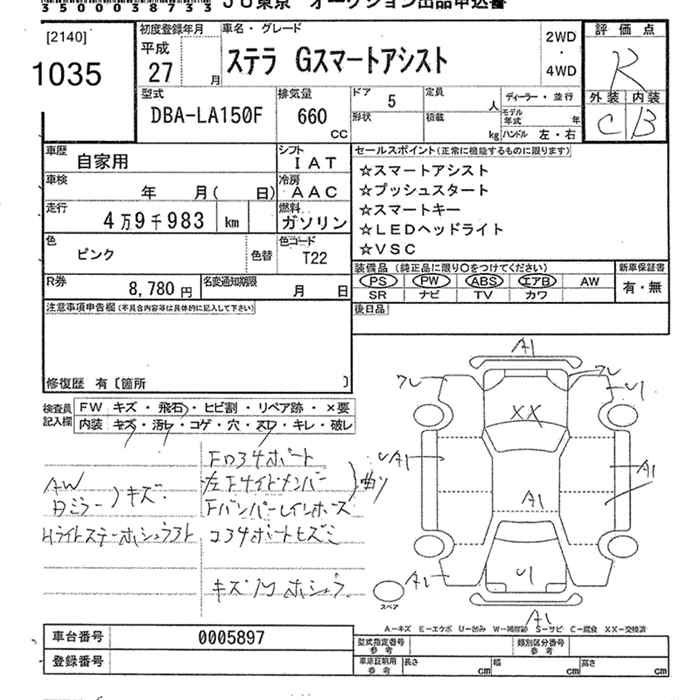 350003873З JU東京 オークション出品申込書
[2140]
1035
初度登録年月 車名・グレード
平成
27 月
ステラ Gスマートアシスト
2WD
・
4WD
評価点
R
外装 内装
C B
型式 排気量 ドア 定員 ディーラー・並行
DBA-LA150F 660 CC 5 人
形状 積載 kg モデル年式 年
ハンドル 左・右
車歴 自家用 シフト IAT
車検 年 月( 日) 冷房 AAC
走行 4万9千983 km 燃料 ガソリン
色 ピンク 色替 色コード T22
R券 8,780円 名変通知期限 月 日
セールスポイント(正常に機能するものに限ります)
☆スマートアシスト
☆プッシュスタート
☆スマートキー
☆LEDヘッドライト
☆VSC
装備品 (純正品に限り〇をつけてください) 新車保証書
PS PW ABS エアB AW 有・無
SR ナビ TV カワ
後日品
注意事項申告欄(不具合内容等は具体的に記入して下さい)
修復歴 有〔箇所 〕
検査員記入欄 FW キズ・飛石・ヒビ割・リペア跡・×要
内装 キズ・汚レ・コゲ・穴・スレ・キレ・破レ
AW
キズ
左Fサイドメンバー
曲り
Fバンパーレインホース
A1
XX
U1
A1
A1
A1
U1
A1
A1
スペア
A-キズ E-エクボ U-凹み W-補修跡 S-サビ C-腐食 XX-交換済
車台番号 0005897
登録番号
型式指定番号 参考 類別区分番号 参考
車庫証明用 参考 長さ cm 幅 cm 高さ cm